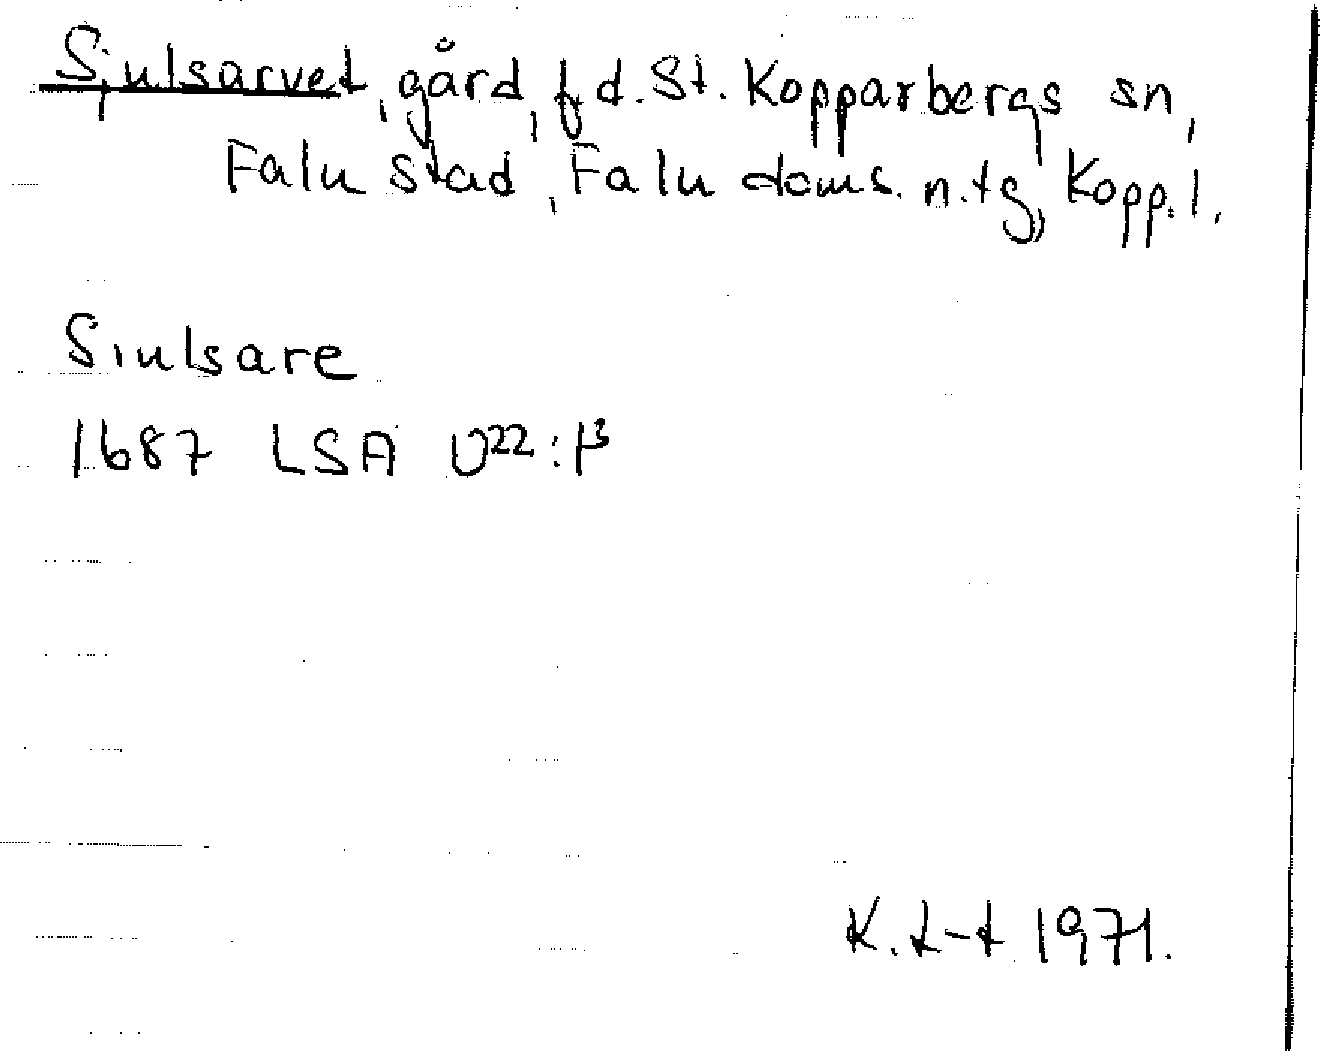 Sjulsarvet, gård, f d. St. Kopparbergs sn,
Falu stad, Falu doms. n. tg, Kopp. l.
Siulsare
1687 LSA U²²:1³
K. L-t 1971.